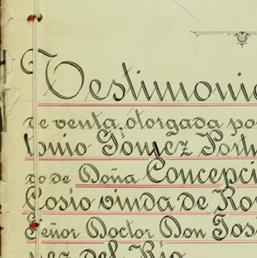 Testimonio
de venta, otorgada po
tonio Gómez Portu
ro de Doña Concepci
Cosio viuda de Ro
Señor Doctor Don Jos
nez del Rio